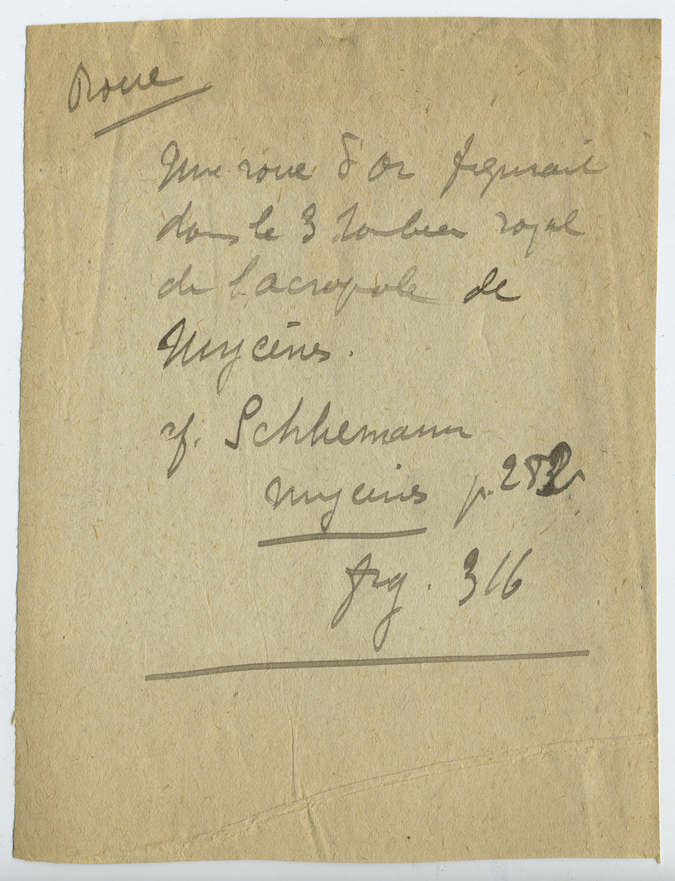 Roue
Une roue d'or figurait
dans le 3 tombeau royal
de l'acropole de
Mycènes.
cf. Schliemann
Mycènes p. 282
fig. 316